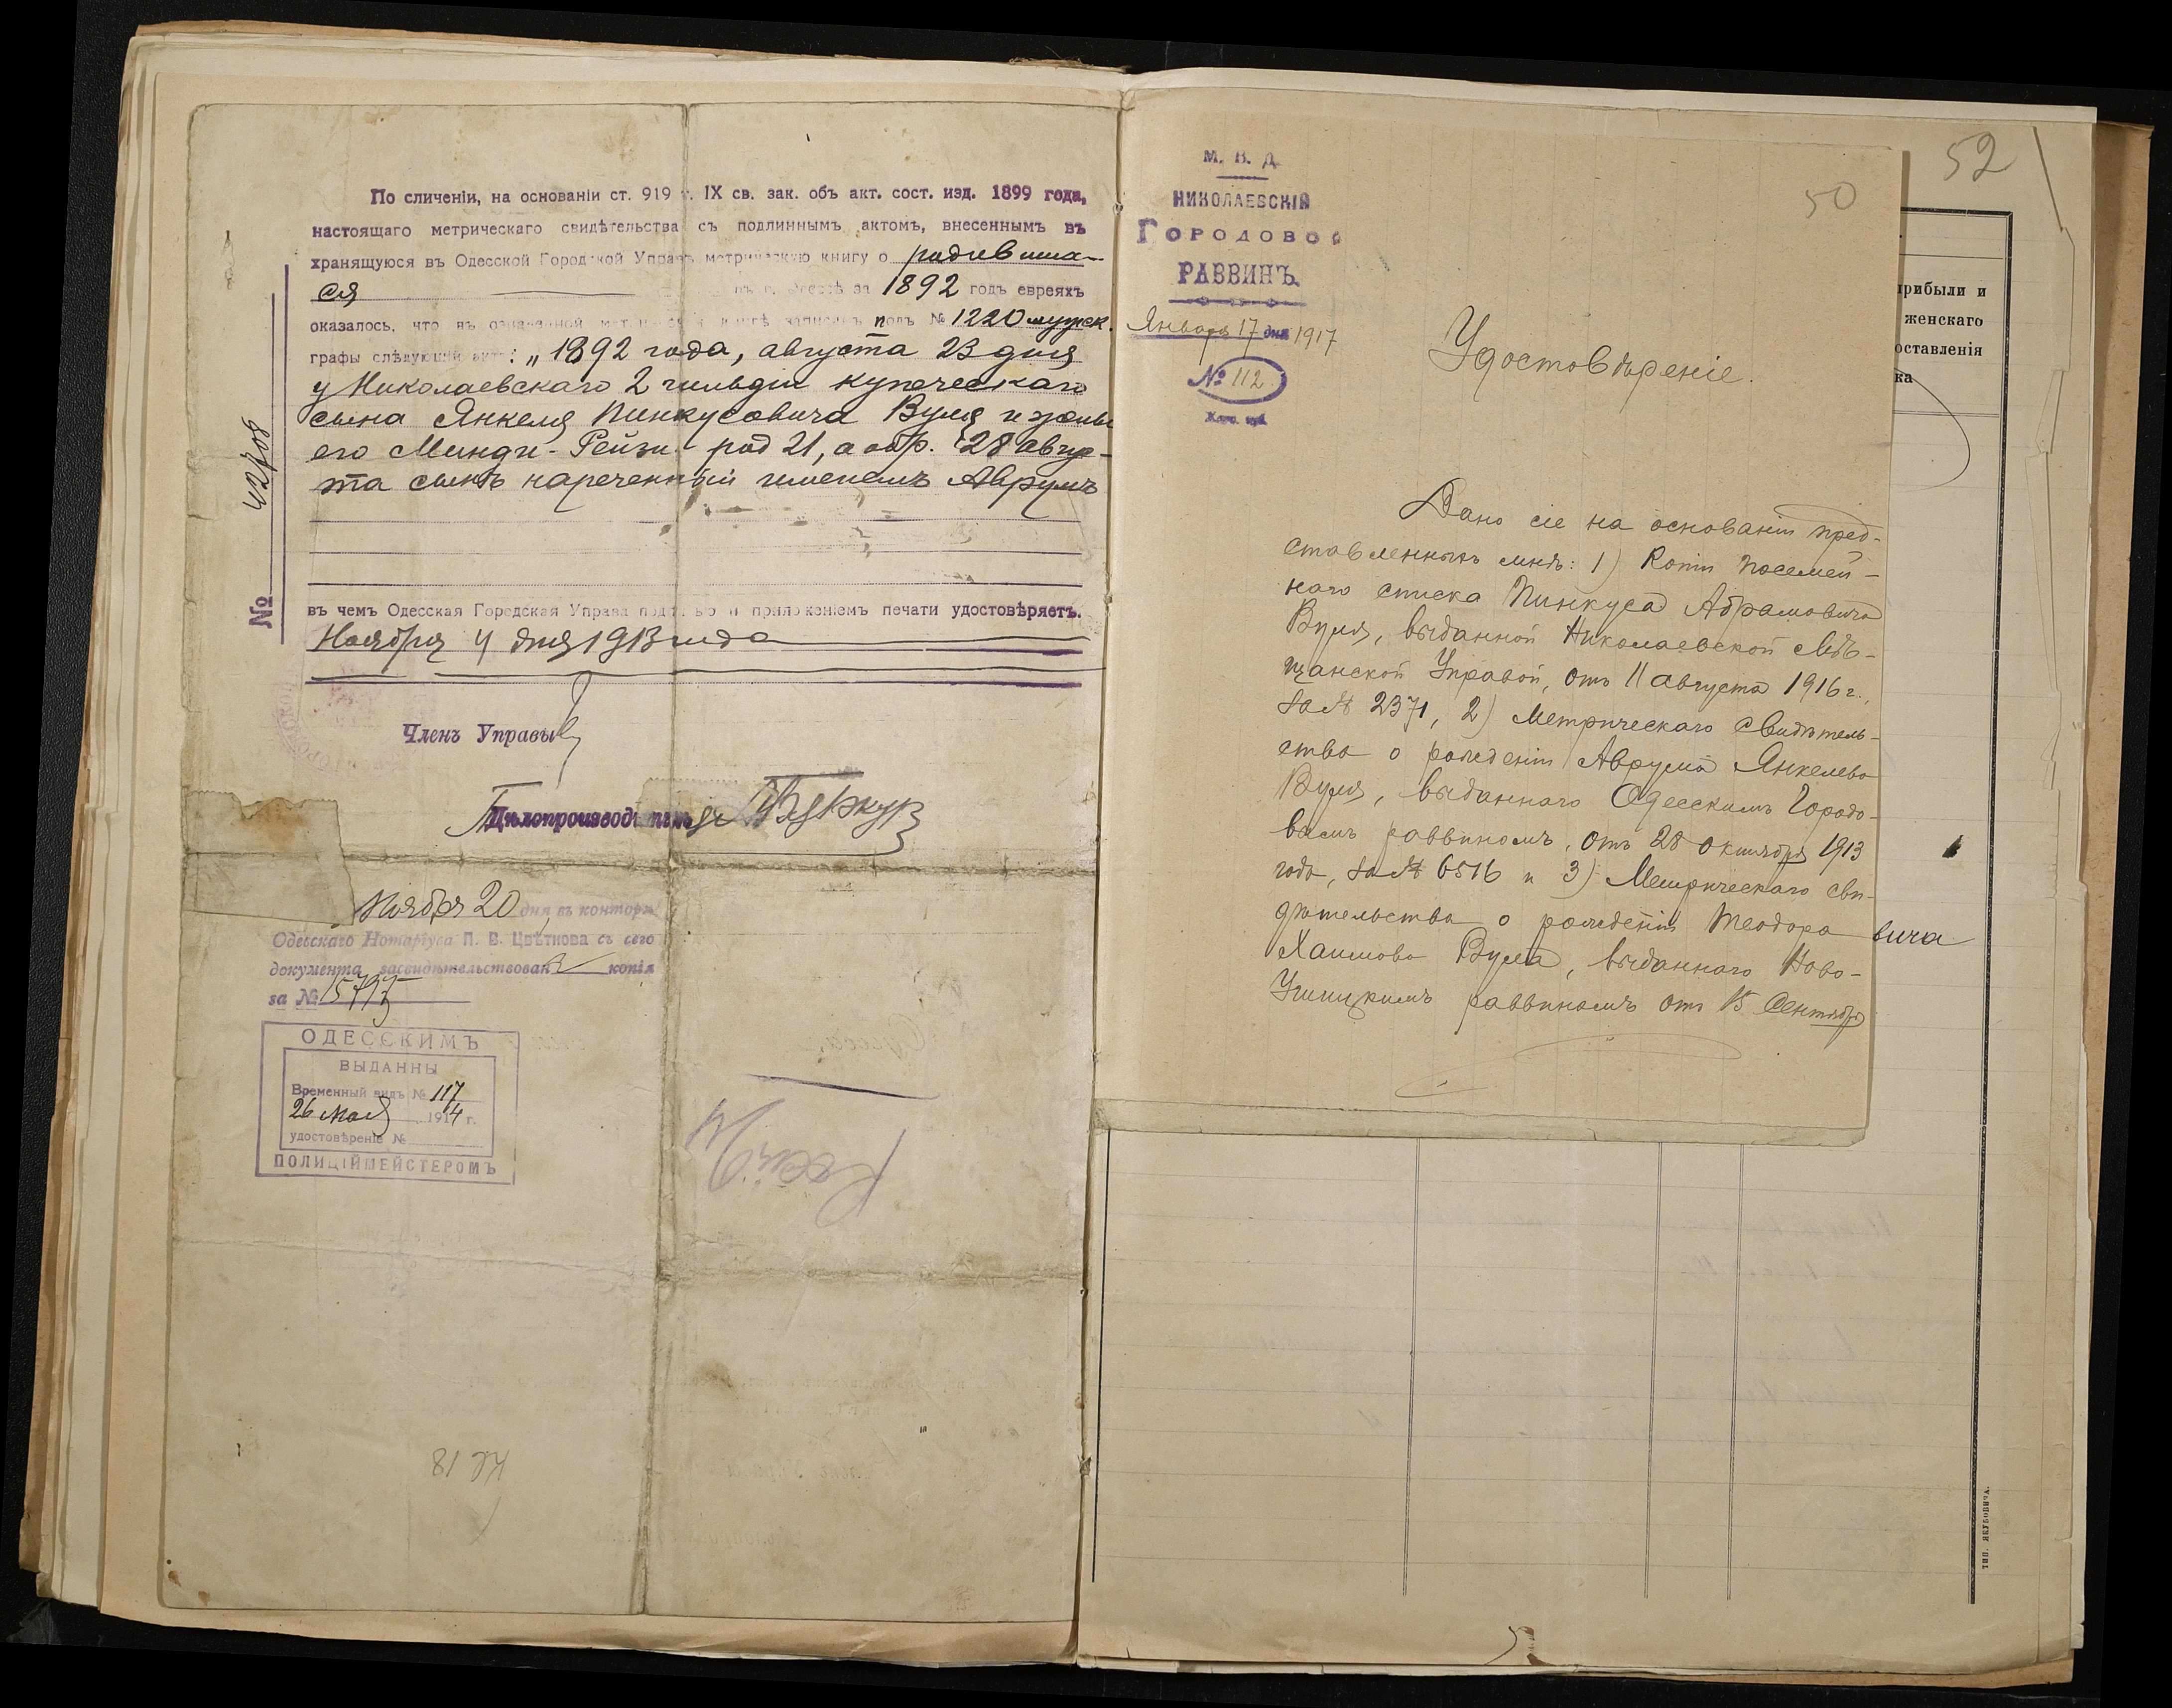 По сличеніи, на основаніи ст. 919 т. IX св. зак. объ акт. сост. изд. 1899 года,
настоящаго метрическаго свидѣтельства съ подлиннымъ актомъ, внесеннымъ въ
хранящуюся въ Одесской Городской Управѣ метрическую книгу о родивших-
ся въ г. Одессѣ за 1892 годъ евреяхъ
оказалось, что въ означенной метрической книгѣ записанъ подъ № 1220 мужск.
графы слѣдующій актъ: „1892 года, августа 23 дня
у Николаевскаго 2 гильдіи купеческаго
сына Янкеля Пинкусовича Вуля и жены
его Минди-Рейзи род 21, а обр. 28 авгу-
ста сынъ нареченный именемъ Аврумъ
въ чемъ Одесская Городская Управа подписью и приложеніемъ печати удостовѣряетъ.
Ноября 4 дня 1913 года
№ 42708
Членъ Управы
Дѣлопроизводитель
Ноября 20 дня въ конторѣ
Одесскаго Нотаріуса П. В. Цвѣткова съ сего
документа засвидѣтельствована копія
за №
ОДЕССКИМЪ
ВЫДАННЫ
Временный видъ № 117
26 мая 1914 г.
удостовѣреніе №
ПОЛИЦІЙМЕЙСТЕРОМЪ
52
50
М. В. Д.
НИКОЛАЕВСКІЙ
ГОРОДОВОЙ
РАВВИНЪ
Января 17 дня 1917
№ 112
Херс. губ.
Удостовѣреніе.
Дано сіе на основаніи пред-
ставленныхъ мнѣ: 1) Копіи посемей-
наго списка Пинкуса Абрамовича
Вуля, выданной Николаевской Мѣ-
щанской Управой, отъ 11 августа 1916 г.
за № 2371, 2) Метрическаго свидѣтель-
ства о рожденіи Аврума Янкелева
Вуля, выданнаго Одесскимъ Городо-
вымъ раввиномъ, отъ 28 октября 1913
года, за № 6516 и 3) Метрическаго сви-
дѣтельства о рожденіи Теодора
Хаимова Вуля, выданнаго Ново-
Ушицкимъ раввиномъ отъ 15 Сентября
вича
прибыли и
женскаго
оставленія
ка
ТИП. ЯКУБОВИЧА.